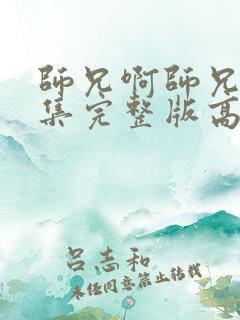 師兄啊師兄
集完整版高
吕志和
未经同意禁止转载